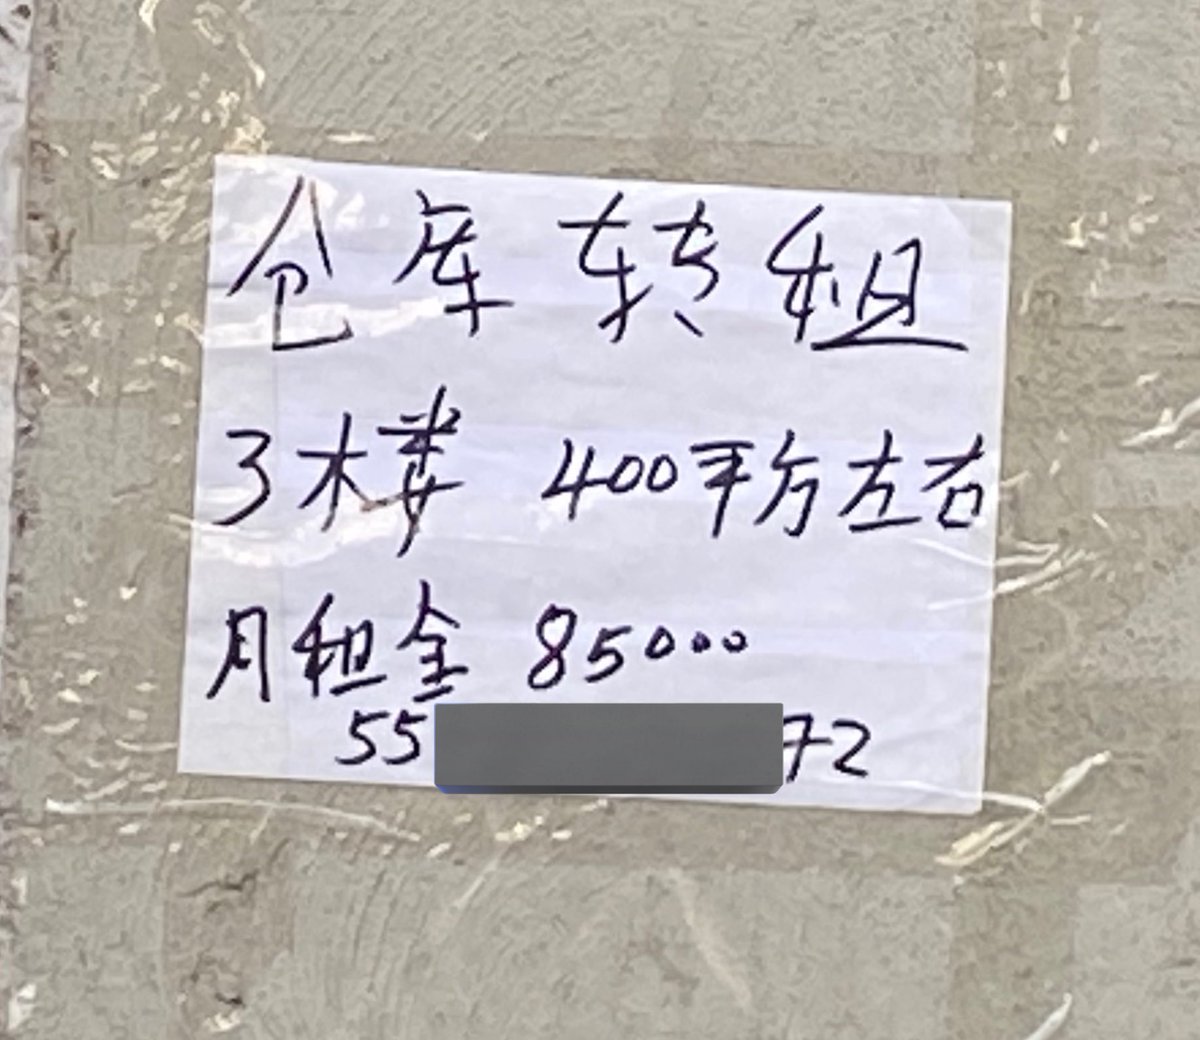 仓库转租
3楼 400平方左右
月租金 85000
55 72